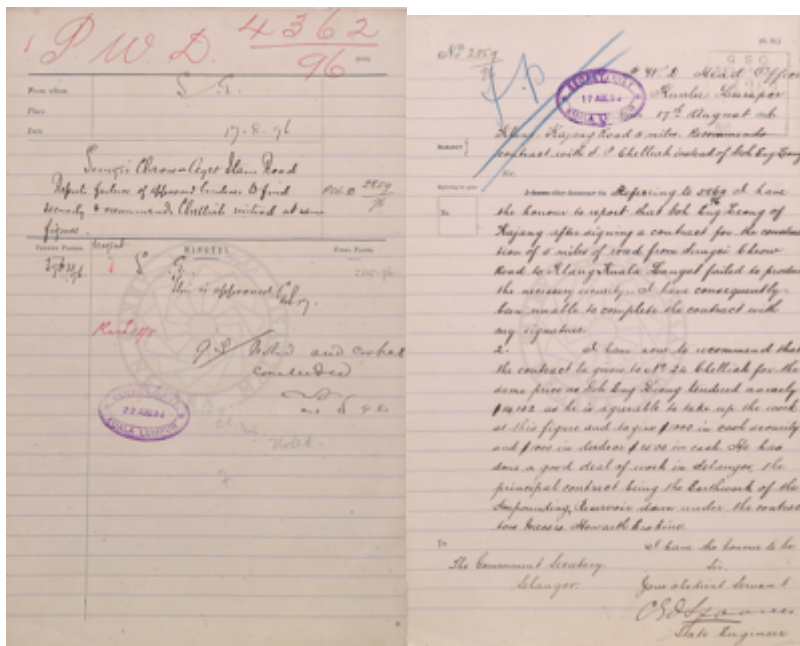 P.W.D. 4362
96
From whom
S. E.
Place
Date
17-8-96
Sungei Chrow-Ayer Itam Road
Report failure of approved tenderer to find
security & recommends Chelliah instead at same
figure.
2859
96
FORMER PAPERS.
MINUTES
FINAL PAPERS.
S. E.
This is approved
and contract
concluded
22 AUG 96
KUALA LUMPUR
Noted
No 2859
96
P.W.D. Head Office
Kuala Lumpur
17th August 96
SECRETARIAT
17 AUG 96
KUALA LUMPUR
Klang-Kajang Road 5 miles. Recommends
contract with Chelliah instead of Soh Eng
Sir,
I have the honour to Referring to I have
the honour to report that Soh Eng Keong of
Kajang after signing a contract for the construc
tion of 5 miles of road from Sungei Chrow
Road to Klang-Kuala Langat failed to produce
the necessary security. I have consequently
been unable to complete the contract with
my signature.
2. I have now to recommend that
the contract be given to Chelliah for the
same price as Soh Eng Keong tendered namely
$14,102 as he is agreeable to take up the work
at this figure and to give $1000 in cash security
and $1000 in in cash. He has
done a good deal of work in Selangor, the
principal contract being the Earthwork of the
Impounding Reservoir dam under the contrac
tors Messrs Howarth Erskine.
I have the honour to be
To
The Government Secretary
Sir,
Selangor.
Your obedient Servant
State Engineer